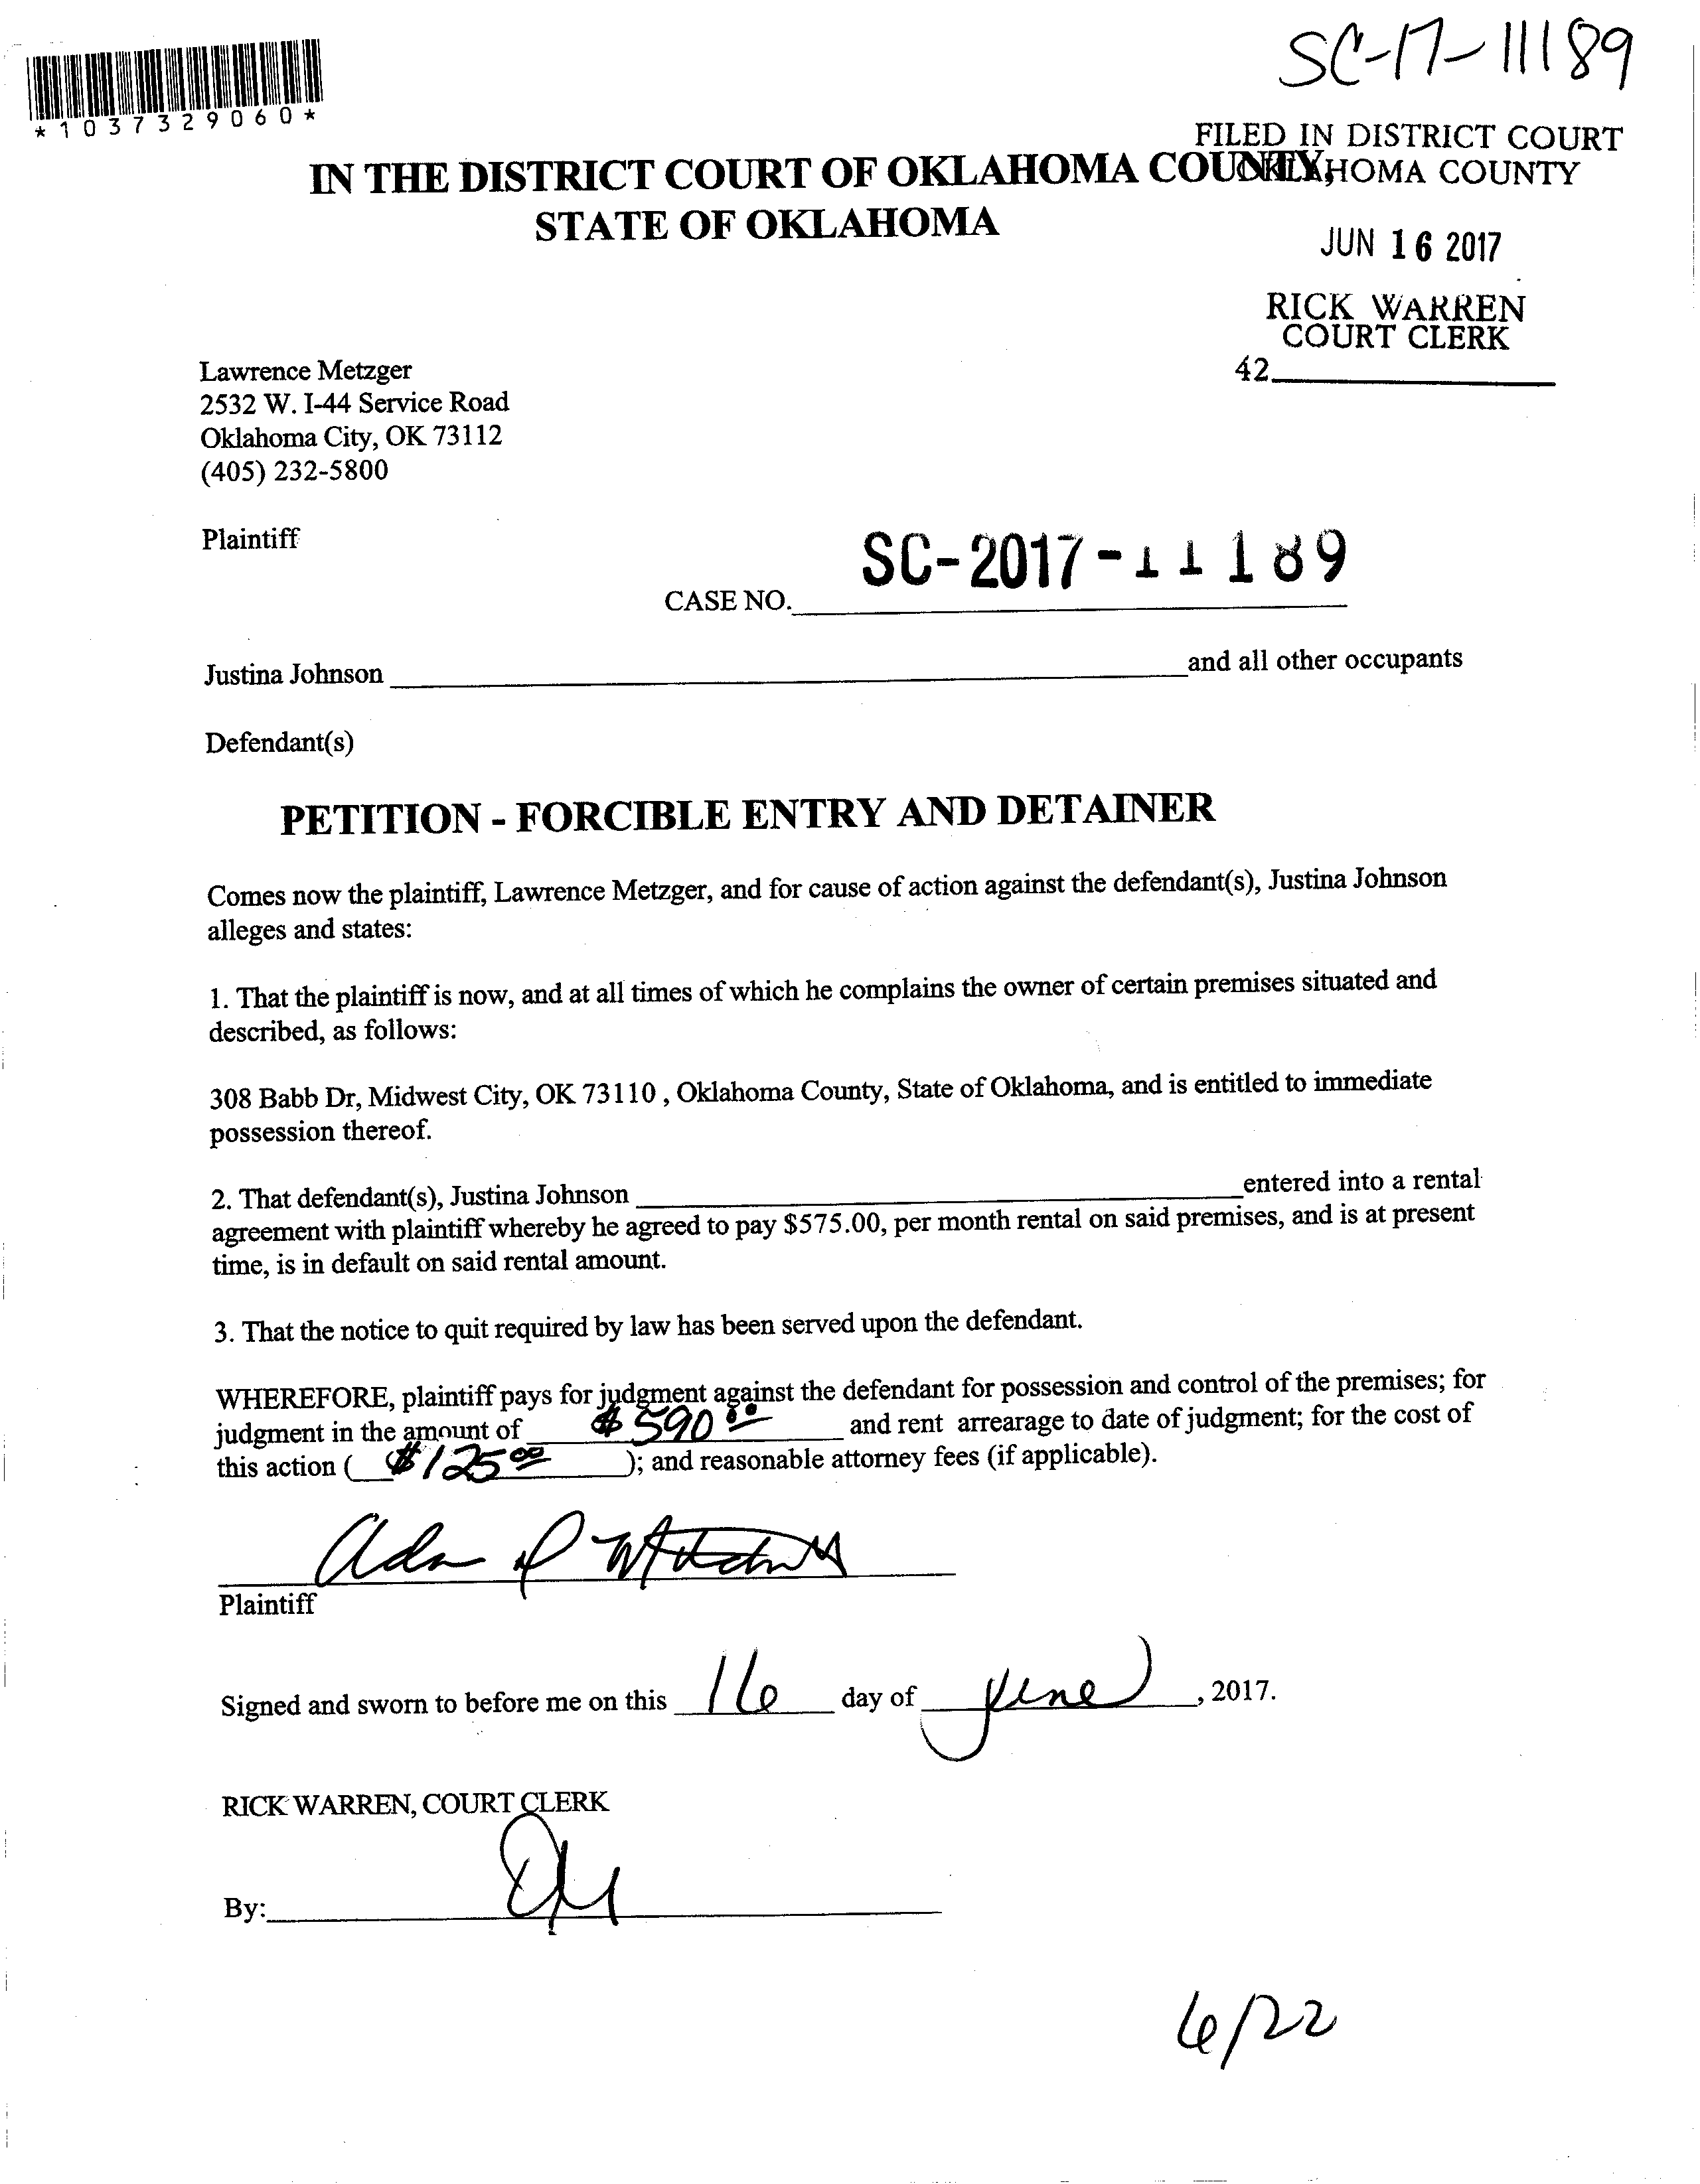 SC-17-11189
*1037329060*
FILED IN DISTRICT COURT
OKLAHOMA COUNTY
IN THE DISTRICT COURT OF OKLAHOMA COUNTY,
STATE OF OKLAHOMA
JUN 16 2017
RICK WARREN
COURT CLERK
42
Lawrence Metzger
2532 W. I-44 Service Road
Oklahoma City, OK 73112
(405) 232-5800
Plaintiff
CASE NO. SC-2017-11189
Justina Johnson and all other occupants
Defendant(s)
PETITION - FORCIBLE ENTRY AND DETAINER
Comes now the plaintiff, Lawrence Metzger, and for cause of action against the defendant(s), Justina Johnson
alleges and states:
1. That the plaintiff is now, and at all times of which he complains the owner of certain premises situated and
described, as follows:
308 Babb Dr, Midwest City, OK 73110 , Oklahoma County, State of Oklahoma, and is entitled to immediate
possession thereof.
2. That defendant(s), Justina Johnson entered into a rental
agreement with plaintiff whereby he agreed to pay $575.00, per month rental on said premises, and is at present
time, is in default on said rental amount.
3. That the notice to quit required by law has been served upon the defendant.
WHEREFORE, plaintiff pays for judgment against the defendant for possession and control of the premises; for
judgment in the amount of $590.00 and rent arrearage to date of judgment; for the cost of
this action ( $125.00 ); and reasonable attorney fees (if applicable).
Plaintiff
Signed and sworn to before me on this 16 day of June , 2017.
RICK WARREN, COURT CLERK
By:
6/22